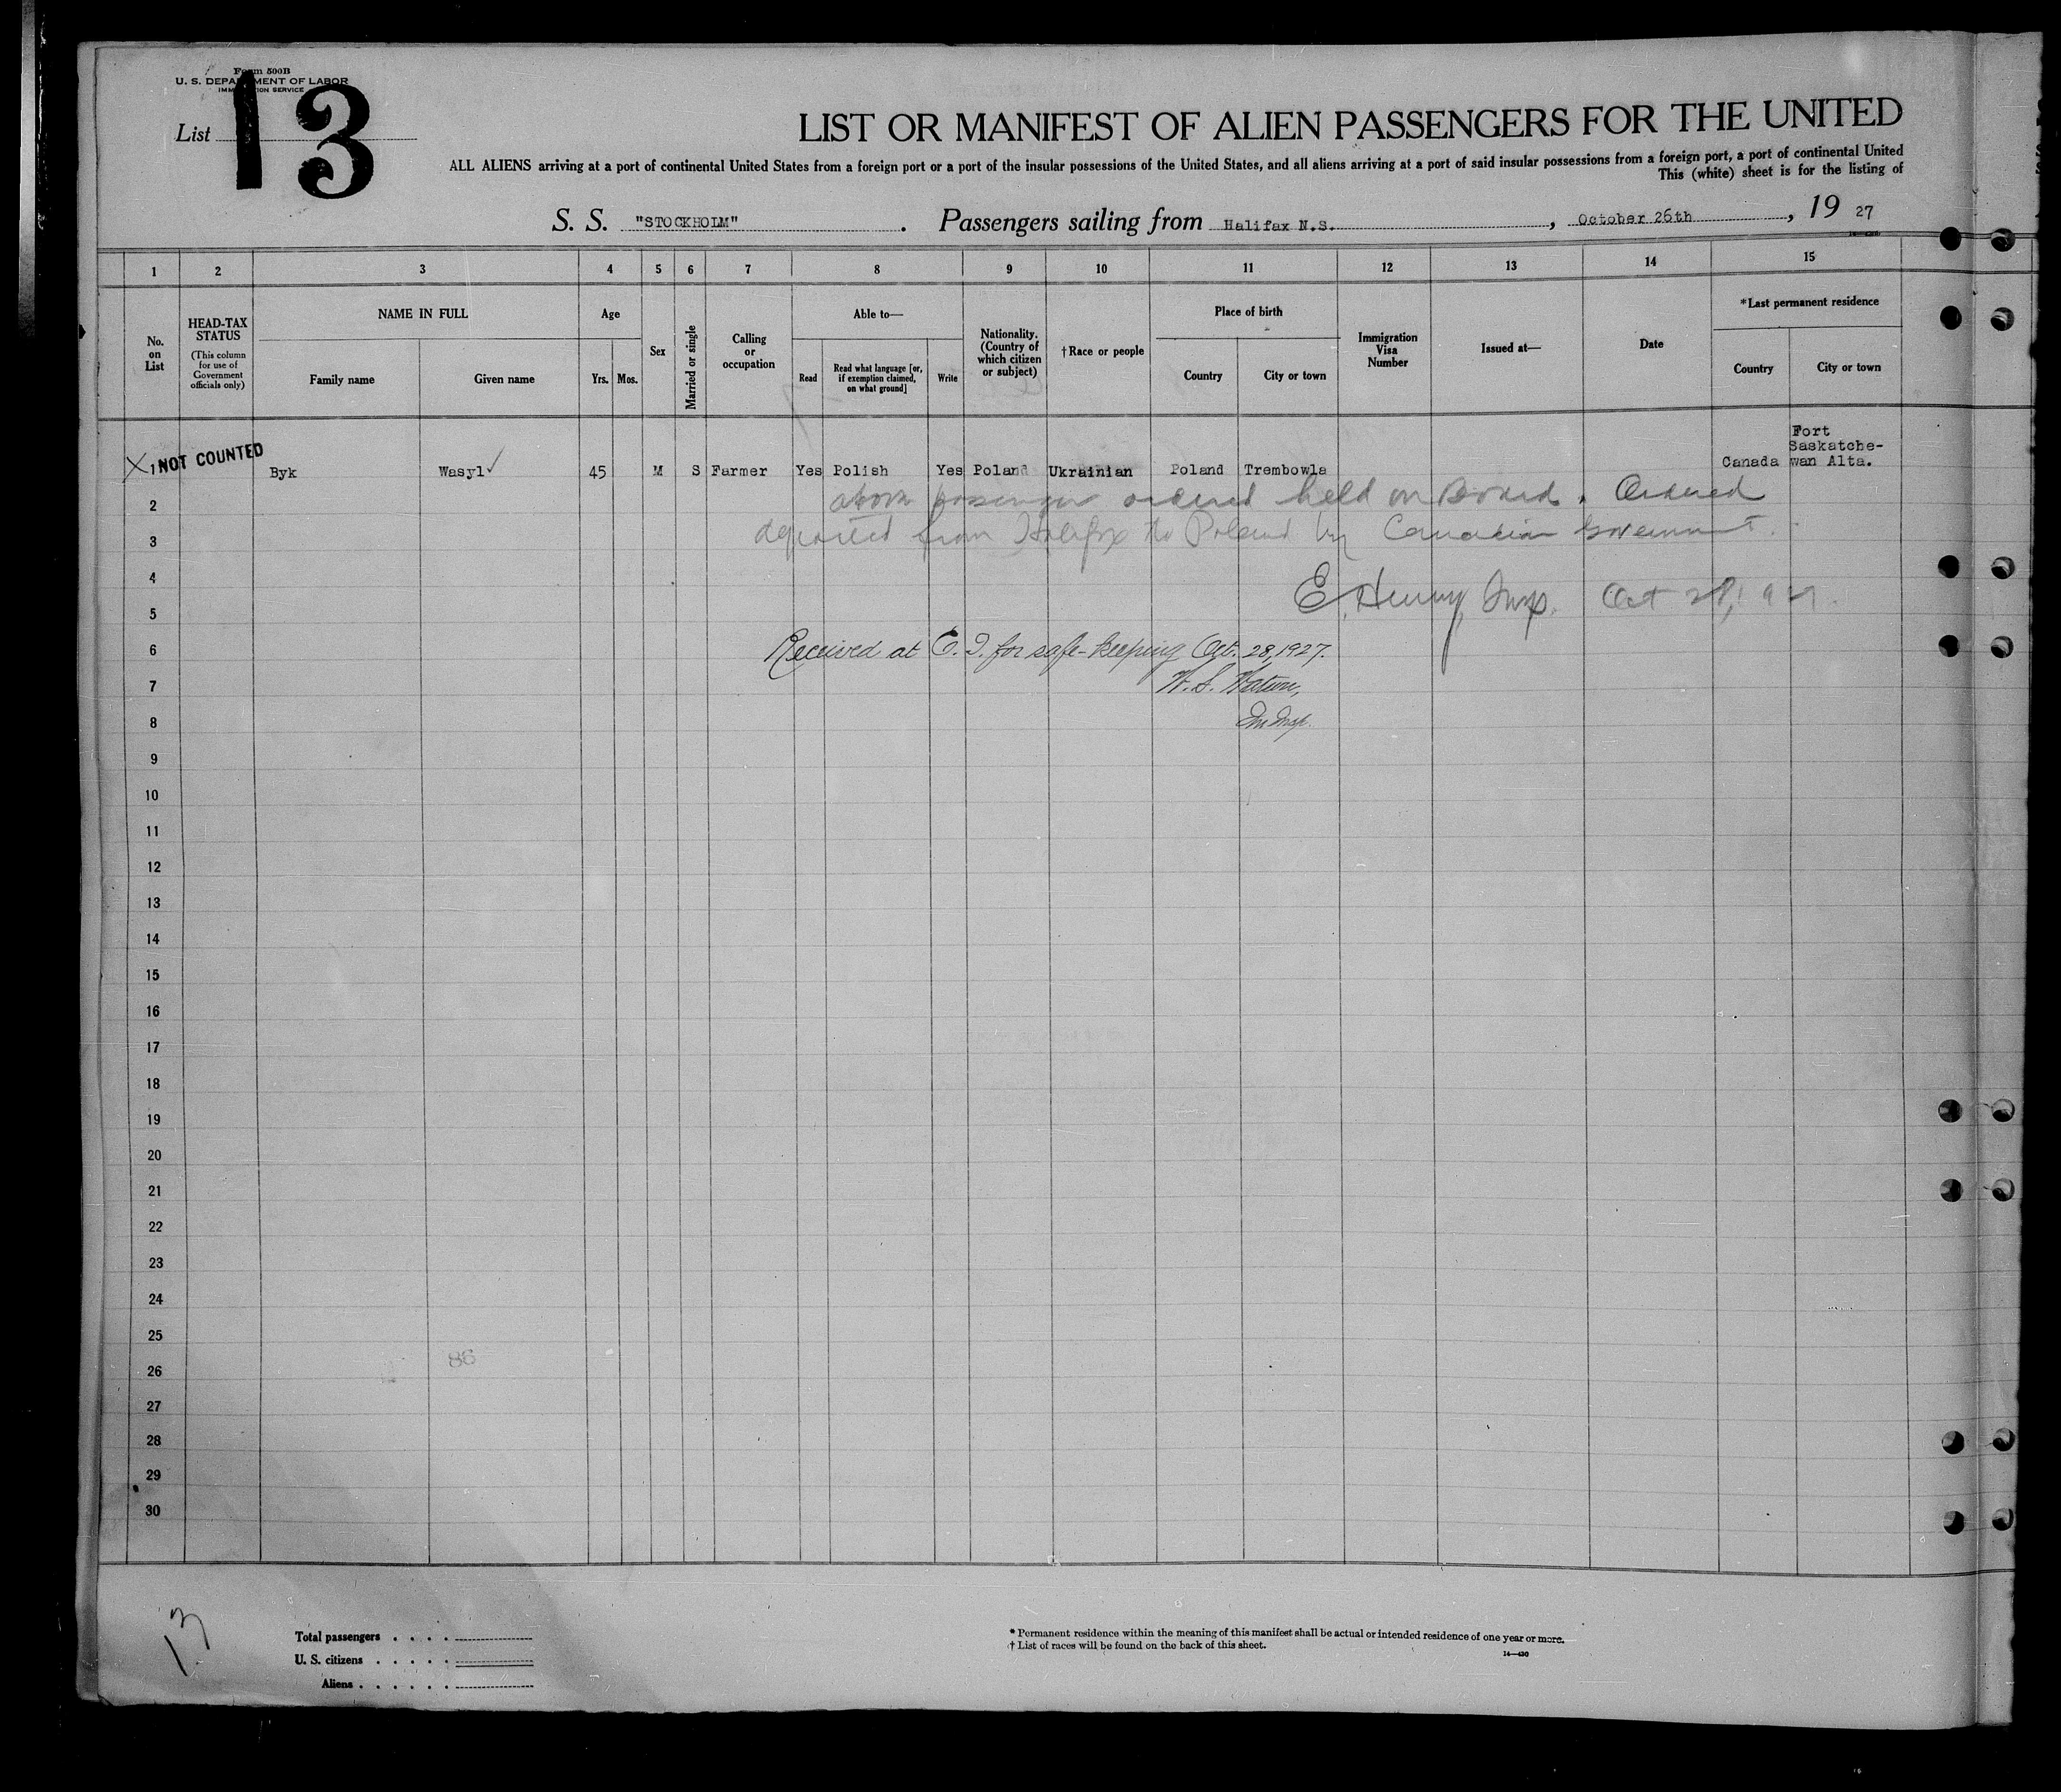 Form 500B
U. S. DEPARTMENT OF LABOR
IMMIGRATION SERVICE
List 13
LIST OR MANIFEST OF ALIEN PASSENGERS FOR THE UNITED
ALL ALIENS arriving at a port of continental United States from a foreign port or a port of the insular possessions of the United States, and all aliens arriving at a port of said insular possessions from a foreign port, a port of continental United
This (white) sheet is for the listing of
S. S. "STOCKHOLM". Passengers sailing from Halifax N.S., October 26th, 19 27
1 2 3 4 5 6 7 8 9 10 11 12 13 14 15
No. on List
HEAD-TAX STATUS
(This column for use of Government officials only)
NAME IN FULL
Family name
Given name
Age
Yrs. Mos.
Sex
Married or single
Calling or occupation
Able to—
Read
Read what language [or, if exemption claimed, on what ground]
Write
Nationality. (Country of which citizen or subject)
†Race or people
Place of birth
Country
City or town
Immigration Visa Number
Issued at—
Date
*Last permanent residence
Country
City or town
X 1 NOT COUNTED Byk Wasyl ✓ 45 M S Farmer Yes Polish Yes Poland Ukrainian Poland Trembowla Canada Fort Saskatche-wan Alta.
2 above passenger ordered held on Board. Ordered
3 deported from Halifax to Poland by Canadian Government.
4
5 E. Henry, Insp. Oct 28, 1927.
6 Received at E. I. for safe-keeping Oct. 28, 1927.
7 W. S.
8 Im Insp.
9
10
11
12
13
14
15
16
17
18
19
20
21
22
23
24
25
86
26
27
28
29
30
13
Total passengers . . . .
U. S. citizens . . . . .
Aliens . . . . . .
* Permanent residence within the meaning of this manifest shall be actual or intended residence of one year or more.
† List of races will be found on the back of this sheet.
14—430